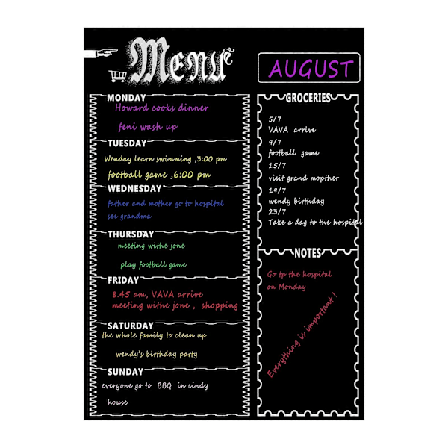 Menu
AUGUST
MONDAY
Howard cooks dinner
feni wash up
TUESDAY
Whaday learn swimming ,3:00 pm
football game ,6:00 pm
WEDNESDAY
father and mother go to hospital
see grandma
THURSDAY
meeting withe jone
play football game
FRIDAY
8.45 am, VAVA arrive
meeting withe jone , shopping
SATURDAY
the whole family to clean up
wendy's birthday party
SUNDAY
everyone go to BBQ in windy
house
GROCERIES
5/7
VAVA arrive
9/7
football game
15/7
visit grand mother
19/7
wendy birthday
23/7
Take a day to the hospital
NOTES
Go to the hospital
on Monday
Everything is important !